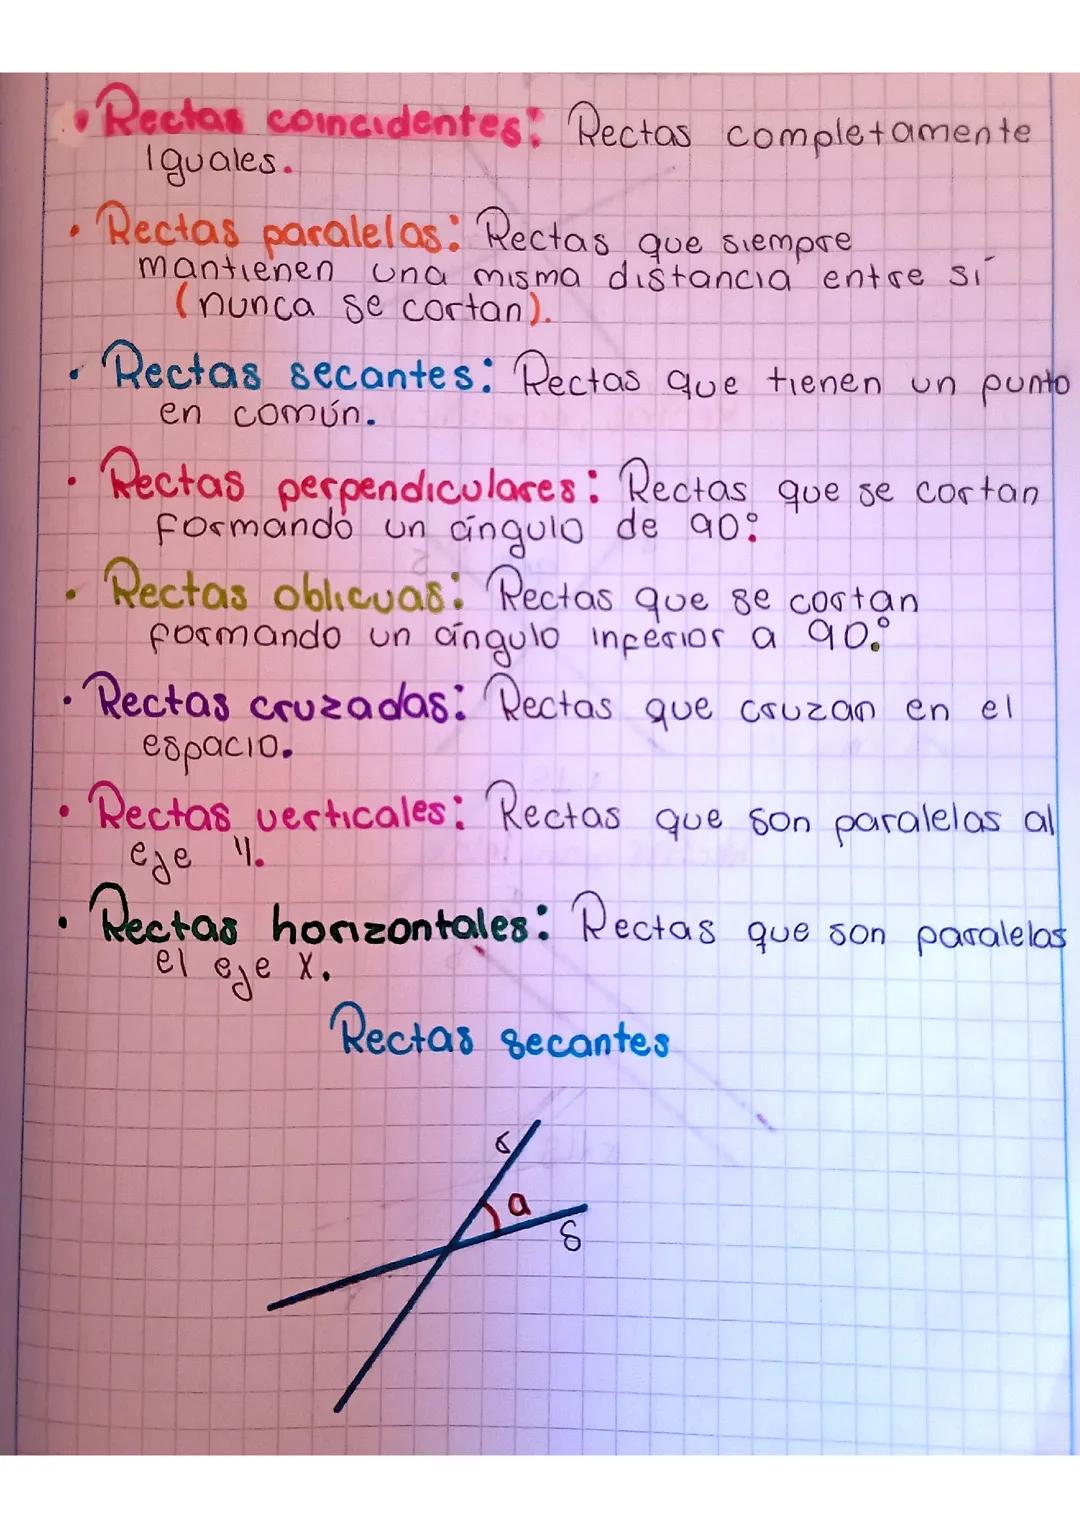 • Rectas coincidentes: Rectas completamente
Iguales.
• Rectas paralelas: Rectas que siempre
mantienen una misma distancia entre sí
(nunca se cortan).
• Rectas secantes: Rectas que tienen un punto
en común.
• Rectas perpendiculares: Rectas que se cortan
formando un ángulo de 90º.
• Rectas oblicuas: Rectas que se cortan
formando un ángulo inferior a 90º.
• Rectas cruzadas: Rectas que cruzan en el
espacio.
• Rectas verticales: Rectas que son paralelas al
eje y.
• Rectas horizontales: Rectas que son paralelas
el eje X.
Rectas secantes
r
a
s